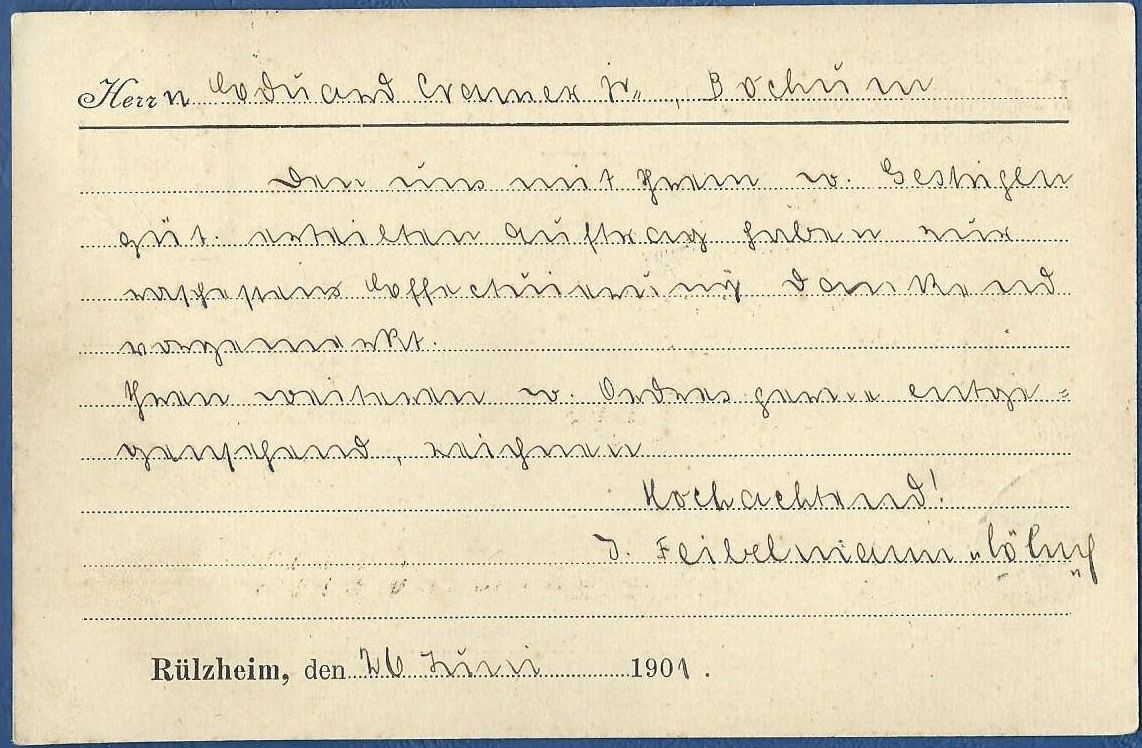 Herrn Eduard Cramer Jr., Bochum
Den uns mit Ihrem w. Gestrigen
güt. erteilten Auftrag haben wir
raschestens Effectuierung dankend
vorgemerkt.
Ihren weiteren w. Ordres gerne entge-
gensehend, zeichnen
Hochachtend!
J. Feibelmann
Rülzheim, den 26 Juni 1901.